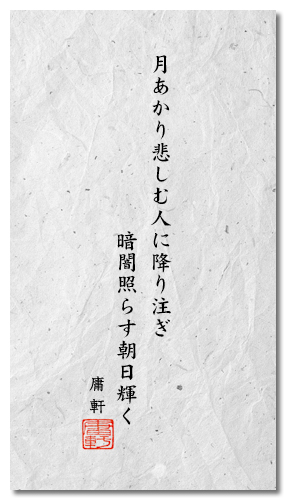 月あかり悲しむ人に降り注ぎ
暗闇照らす朝日輝く
庸軒